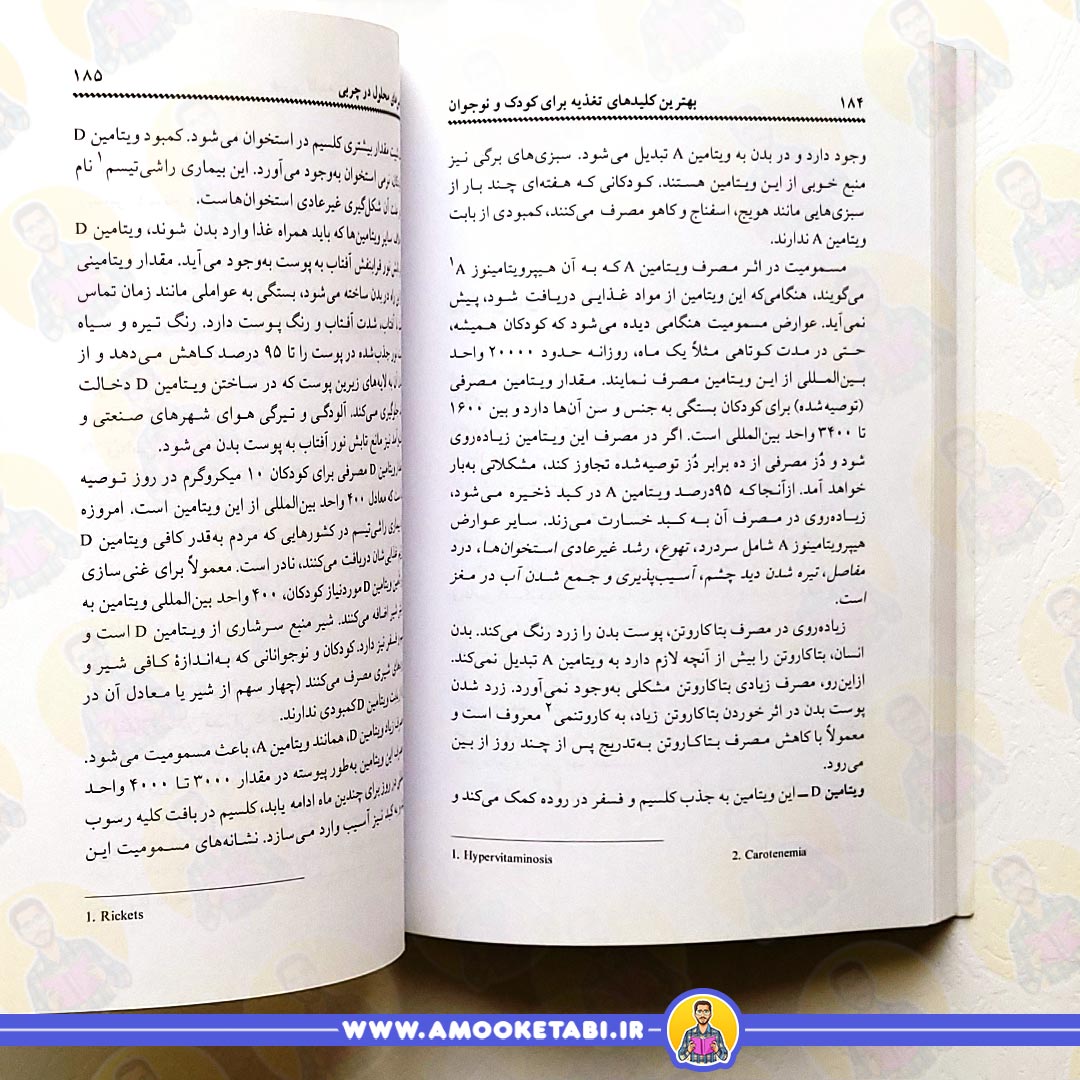 ۱۸۴
بهترین کلیدهای تغذیه برای کودک و نوجوان
وجود دارد و در بدن به ویتامین A تبدیل می‌شود. سبزی‌های برگی نیز
منبع خوبی از این ویتامین هستند. کودکانی که هفته‌ای چند بار از
سبزی‌هایی مانند هویج، اسفناج و کاهو مصرف می‌کنند، کمبودی از بابت
ویتامین A ندارند.
مسمومیت در اثر مصرف ویتامین A که به آن هیپرویتامینوز A۱
می‌گویند، هنگامی‌که این ویتامین از مواد غذایی دریافت شود، پیش
نمی‌آید. عوارض مسمومیت هنگامی دیده می‌شود که کودکان همیشه،
حتی در مدت کوتاهی مثلاً یک ماه، روزانه حدود ۲۰۰۰۰ واحد
بین‌المللی از این ویتامین مصرف نمایند. مقدار ویتامین مصرفی
(توصیه‌شده) برای کودکان بستگی به جنس و سن آن‌ها دارد و بین ۱۶۰۰
تا ۳۴۰۰ واحد بین‌المللی است. اگر در مصرف این ویتامین زیاده‌روی
شود و دُز مصرفی از ده برابر دُز توصیه‌شده تجاوز کند، مشکلاتی به‌بار
خواهد آمد. ازآنجاکه ۹۵درصد ویتامین A در کبد ذخیره می‌شود،
زیاده‌روی در مصرف آن به کبد خسارت می‌زند. سایر عوارض
هیپرویتامینوز A شامل سردرد، تهوع، رشد غیرعادی استخوان‌ها، درد
مفاصل، تیره شدن دید چشم، آسیب‌پذیری و جمع شدن آب در مغز
است.
زیاده‌روی در مصرف بتاکاروتن، پوست بدن را زرد رنگ می‌کند. بدن
انسان، بتاکاروتن را بیش از آنچه لازم دارد به ویتامین A تبدیل نمی‌کند.
ازاین‌رو، مصرف زیادی بتاکاروتن مشکلی به‌وجود نمی‌آورد. زرد شدن
پوست بدن در اثر خوردن بتاکاروتن زیاد، به کاروتنمی۲ معروف است و
معمولاً با کاهش مصرف بتاکاروتن به‌تدریج پس از چند روز از بین
می‌رود.
ویتامین D ــ این ویتامین به جذب کلسیم و فسفر در روده کمک می‌کند و
1. Hypervitaminosis
2. Carotenemia
محلول در چربی
۱۸۵
مقدار بیشتری کلسیم در استخوان می‌شود. کمبود ویتامین D
نرمی استخوان به‌وجود می‌آورد. این بیماری راشی‌تیسم۱ نام
آن شکل‌گیری غیرعادی استخوان‌هاست.
سایر ویتامین‌ها که باید همراه غذا وارد بدن شوند، ویتامین D
نور فرابنفش آفتاب به پوست به‌وجود می‌آید. مقدار ویتامینی
راه در بدن ساخته می‌شود، بستگی به عواملی مانند زمان تماس
آفتاب، شدت آفتاب و رنگ پوست دارد. رنگ تیره و سیاه
نور جذب‌شده در پوست را تا ۹۵ درصد کاهش می‌دهد و از
به لایه‌های زیرین پوست که در ساختن ویتامین D دخالت
جلوگیری می‌کند. آلودگی و تیرگی هوای شهرهای صنعتی و
نیز مانع تابش نور آفتاب به پوست بدن می‌شود.
ویتامین D مصرفی برای کودکان ۱۰ میکروگرم در روز توصیه
که معادل ۴۰۰ واحد بین‌المللی از این ویتامین است. امروزه
راشی‌تیسم در کشورهایی که مردم به‌قدر کافی ویتامین D
دریافت می‌کنند، نادر است. معمولاً برای غنی‌سازی
ویتامین D موردنیاز کودکان، ۴۰۰ واحد بین‌المللی ویتامین به
اضافه می‌کنند. شیر منبع سرشاری از ویتامین D است و
فسفر نیز دارد. کودکان و نوجوانانی که به‌اندازهٔ کافی شیر و
شیری مصرف می‌کنند (چهار سهم از شیر یا معادل آن در
ویتامین D کمبودی ندارند.
زیاد ویتامین D، همانند ویتامین A، باعث مسمومیت می‌شود.
این ویتامین به‌طور پیوسته در مقدار ۳۰۰۰ تا ۴۰۰۰ واحد
در روز برای چندین ماه ادامه یابد، کلسیم در بافت کلیه رسوب
به کبد نیز آسیب وارد می‌سازد. نشانه‌های مسمومیت این
1. Rickets
WWW.AMOOKETABI.IR